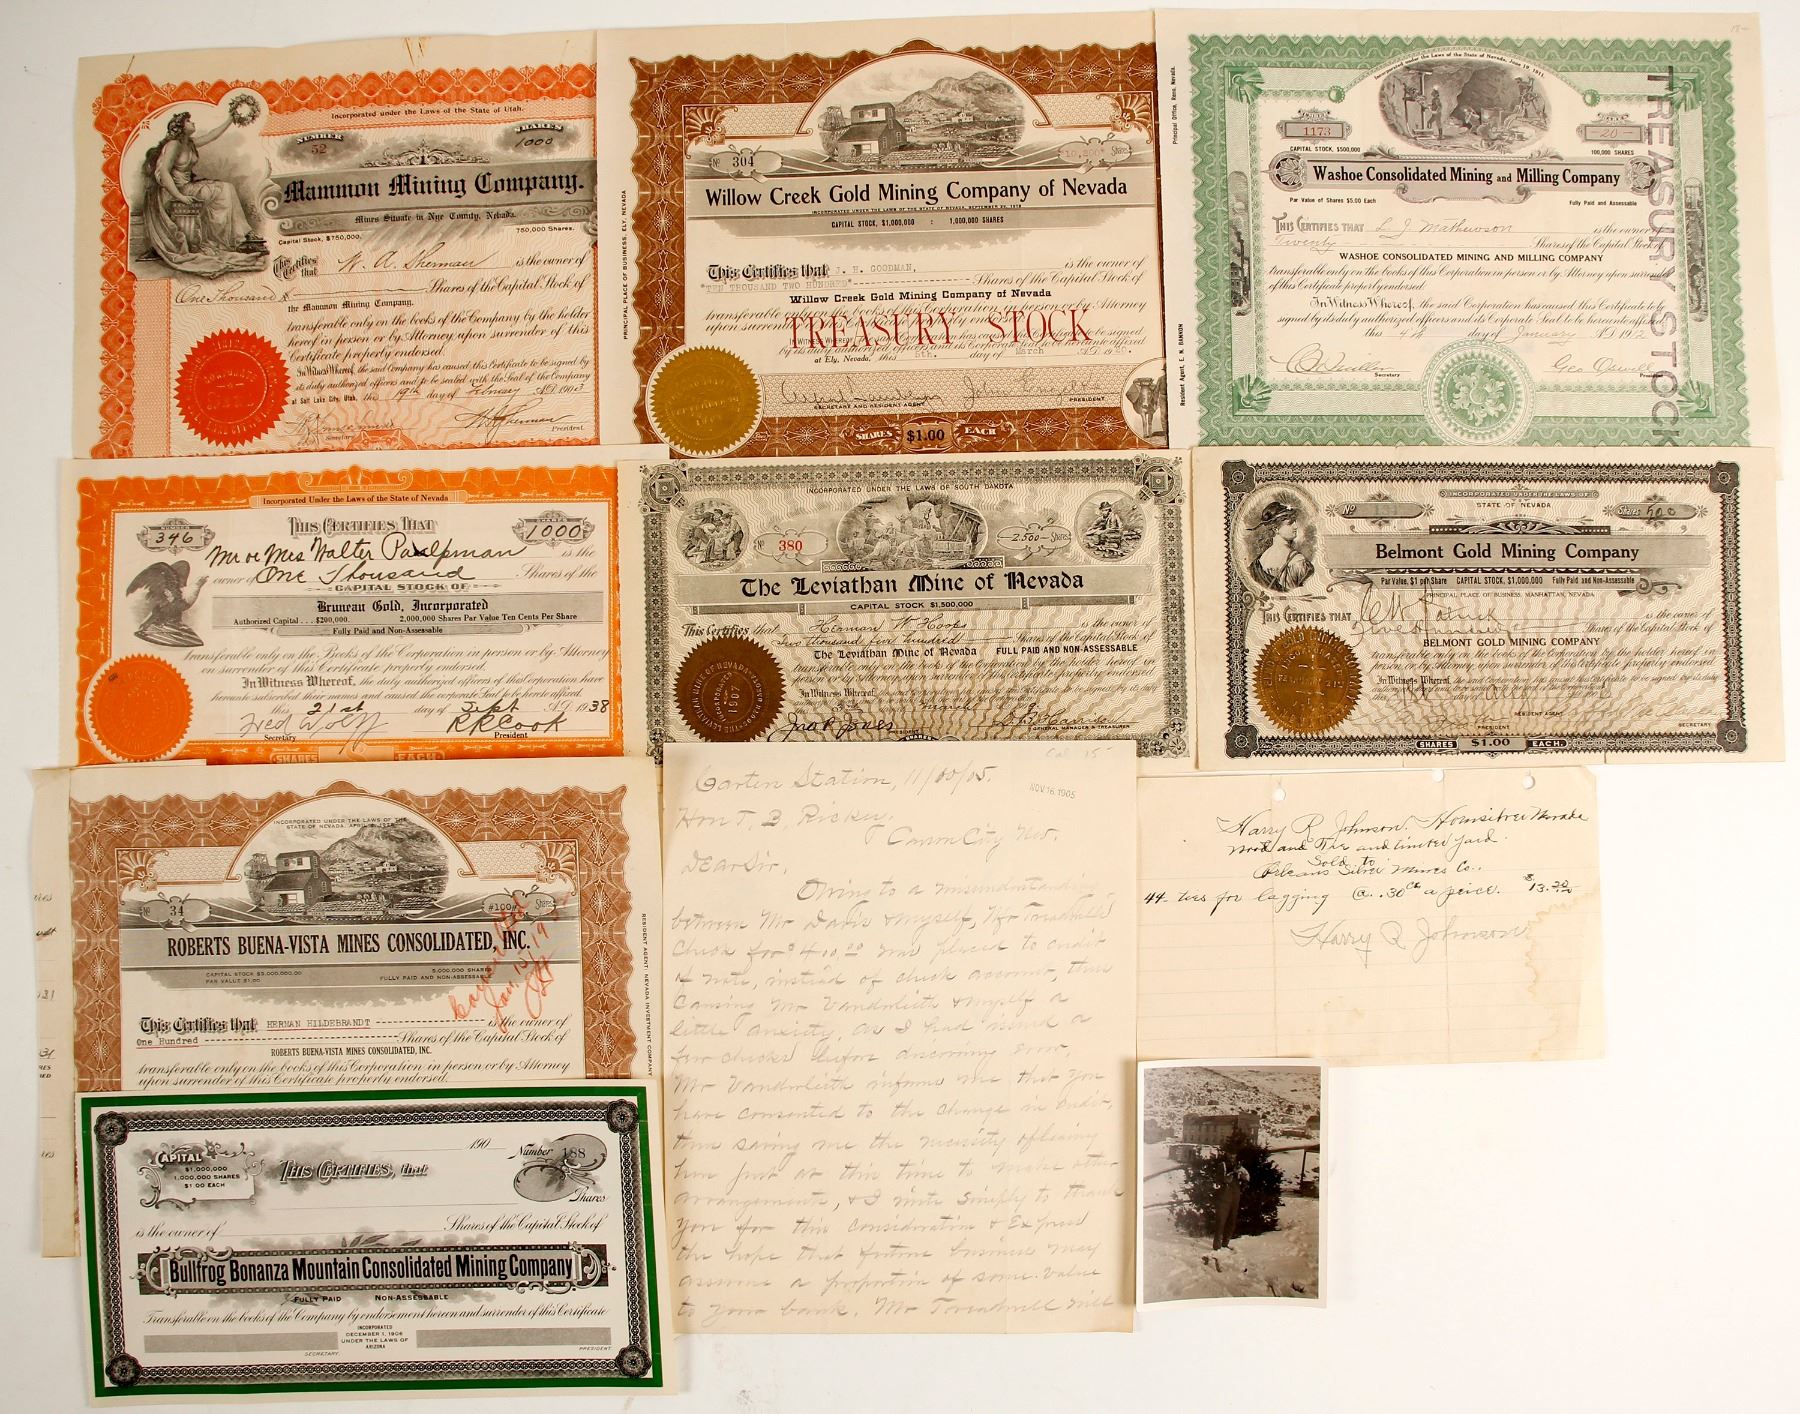 Incorporated under the Laws of the State of Utah.
NUMBER
52
SHARES
1000
Mammon Mining Company.
Mines Situate in Nye County, Nevada.
Capital Stock, $750,000.
750,000 Shares.
This Certifies that W. A. Sherman is the owner of
One Thousand Shares of the Capital Stock of
the Mammon Mining Company.
transferable only on the books of the Company by the holder
hereof in person or by Attorney upon surrender of this
Certificate properly endorsed.
In Witness Whereof, the said Company has caused this Certificate to be signed by
its duly authorized officers and to be sealed with the Seal of the Company
at Salt Lake City, Utah, this 19th day of February A.D. 1903
Secretary
President.
PRINCIPAL PLACE OF BUSINESS, ELY, NEVADA
No 304
10,200 Shares
Willow Creek Gold Mining Company of Nevada
INCORPORATED UNDER THE LAW OF THE STATE OF NEVADA, SEPTEMBER
CAPITAL STOCK, $1,000,000 : 1,000,000 SHARES
This Certifies that J. H. GOODMAN, is the owner of
*TEN THOUSAND TWO HUNDRED* Shares of the Capital Stock of
Willow Creek Gold Mining Company of Nevada
transferable only on the books of the Corporation in person or by Attorney
upon surrender
TREASURY STOCK
at Ely, Nevada, this 5th. day of March
SECRETARY AND RESIDENT AGENT
PRESIDENT
SHARES $1.00 EACH
Principal Office, Reno, Nevada.
Resident Agent, E. N. BANNON
Incorporated under the Laws of the State of Nevada, June 19, 1911.
1173
-20-
CAPITAL STOCK, $500,000
100,000 SHARES
Washoe Consolidated Mining and Milling Company
Par Value of Shares $5.00 Each
Fully Paid and Assessable
THIS CERTIFIES THAT L J Mathewson is the owner of
Twenty Shares of the Capital Stock of
WASHOE CONSOLIDATED MINING AND MILLING COMPANY
transferable only on the books of this Corporation in person or by Attorney upon surrender
of this Certificate properly endorsed.
In Witness Whereof, the said Corporation has caused this Certificate to be
signed by its duly authorized officers and its Corporate Seal to be hereunto affixed
this 4th day of January A.D. 1912
Secretary
President
TREASURY STOCK
Incorporated Under the Laws of the State of Nevada
NUMBER
346
THIS CERTIFIES THAT
SHARES
1000
Mr or Mrs Walter is the
owner of One Thousand Shares of the
CAPITAL STOCK OF
Bruneau Gold, Incorporated
Authorized Capital . . . $200,000. 2,000,000 Shares Par Value Ten Cents Per Share
Fully Paid and Non-Assessable
Transferable only on the Books of the Corporation in person or by Attorney
on surrender of this Certificate properly endorsed.
In Witness Whereof, the duly authorized officers of this Corporation have
hereunto subscribed their names and caused the corporate Seal to be hereto affixed.
this 21st day of Sept A.D. 1938
Fred Wolff
R R Cook
Secretary
President
SHARES EACH
INCORPORATED UNDER THE LAWS OF SOUTH DAKOTA
No 380
2,500 Shares
The Leviathan Mine of Nevada
CAPITAL STOCK $1,500,000
This Certifies that Herman W Hooks is the owner of
Two thousand five hundred Shares of the Capital Stock of
The Leviathan Mine of Nevada FULL PAID AND NON-ASSESSABLE
transferable only on the books of the Corporation by the holder hereof in
person or by Attorney upon surrender of this Certificate properly endorsed.
1907
PRESIDENT
GENERAL MANAGER & TREASURER
INCORPORATED UNDER THE LAWS OF
STATE OF NEVADA
No 131
Shares 500
Belmont Gold Mining Company
Par Value, $1 per Share CAPITAL STOCK, $1,000,000 Fully Paid and Non-Assessable
PRINCIPAL PLACE OF BUSINESS, MANHATTAN, NEVADA
THIS CERTIFIES THAT is the owner of
Five hundred Shares of the Capital Stock of
BELMONT GOLD MINING COMPANY
transferable only on the books of the Corporation by the holder hereof in
person or by Attorney upon surrender of this Certificate properly endorsed
RESIDENT AGENT
PRESIDENT
SECRETARY
SHARES $1.00 EACH.
INCORPORATED UNDER THE LAWS OF THE
STATE OF NEVADA,
No 34
#100# Shares
ROBERTS BUENA-VISTA MINES CONSOLIDATED, INC.
CAPITAL STOCK $5,000,000.00
PAR VALUE $1.00
5,000,000 SHARES
FULLY PAID AND NON-ASSESSABLE
This Certifies that HERMAN HILDEBRANDT is the owner of
One Hundred Shares of the Capital Stock of
ROBERTS BUENA-VISTA MINES CONSOLIDATED, INC.
transferable only on the books of the Corporation in person or by Attorney
upon surrender of this Certificate properly endorsed.
RESIDENT AGENT: NEVADA INVESTMENT COMPANY
Jan. 15/19
CAPITAL
$1,000,000
1,000,000 SHARES
$1.00 EACH
190
Number 188
THIS CERTIFIES, that
Shares
is the owner of Shares of the Capital Stock of
Bullfrog Bonanza Mountain Consolidated Mining Company
FULLY PAID NON-ASSESSABLE
Transferable on the books of the Company by endorsement hereon and surrender of this Certificate
INCORPORATED
DECEMBER 1, 1906
UNDER THE LAWS OF
ARIZONA
SECRETARY.
PRESIDENT
Station, 11/
NOV 16 1905
Hon T, B Rickey,
Carson City Nev.
Dear Sir,
Owing to a misunderstanding
between Mr Davis & myself, Mr Treadwell's
check for $410.00 was placed to credit
of note, instead of check account, thus
causing Mr Vanderlieth & myself a
little anxiety, as I had issued a
few checks before discovering error,
Mr Vanderlieth informs me that you
have consented to the change in credit,
thus saving me the necessity of leaving
here just at this time to make other
arrangements, & I write simply to thank
you for this consideration & express
the hope that future business may
assume a proportion of some value
to your bank. Mr Treadwell will
Harry R Johnson. Hornsilver Nevada
Wood and Tie and timber Yard.
Sold to
Orleans Silver Mines Co..
44 - ties for lagging @ .30cts a peice. $13.20
Harry R Johnson